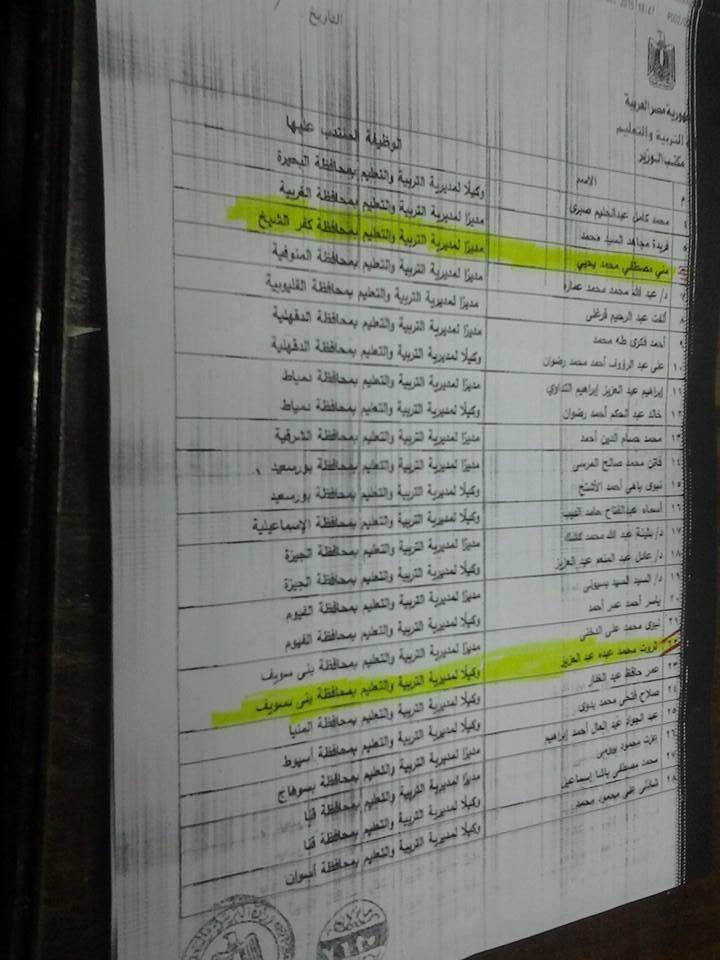 2015 18:47 P002/
جمهورية مصر العربية
التربية والتعليم
مكتب الوزير
التاريخ
م الاسم الوظيفة المنتدب عليها
٤ محمد كامل عبدالحليم صبرى وكيلًا لمديرية التربية والتعليم بمحافظة البحيرة
٥ فريدة مجاهد السيد محمد مديرًا لمديرية التربية والتعليم بمحافظة الغربية
منى مصطفي محمد يحيي مديرًا لمديرية التربية والتعليم بمحافظة كفر الشيخ
٧ د/ عبد الله محمد محمد عمارة مديرًا لمديرية التربية والتعليم بمحافظة المنوفية
٨ ألفت عبد الرحيم فرغلى مديرًا لمديرية التربية والتعليم بمحافظة القليوبية
٩ أحمد فكرى طه محمد مديرًا لمديرية التربية والتعليم بمحافظة الدقهلية
١٠ على عبد الرؤوف أحمد محمد رضوان وكيلًا لمديرية التربية والتعليم بمحافظة الدقهلية
١١ إبراهيم عبد العزيز إبراهيم التداوي مديرًا لمديرية التربية والتعليم بمحافظة دمياط
١٢ خالد عبد الحكم أحمد رضوان وكيلًا لمديرية التربية والتعليم بمحافظة دمياط
١٣ محمد حسام الدين أحمد مديرًا لمديرية التربية والتعليم بمحافظة الشرقية
١٤ فاتن محمد صالح المرسى مديرًا لمديرية التربية والتعليم بمحافظة بورسعيد
١٥ نبوى باهى أحمد وكيلًا لمديرية التربية والتعليم بمحافظة بورسعيد
١٦ أسماء عبدالفتاح حامد وكيلًا لمديرية التربية والتعليم بمحافظة الإسماعيلية
١٧ د/ بثينة عبد الله محمد كشك مديرًا لمديرية التربية والتعليم بمحافظة الجيزة
١٨ د/ عادل عبد المنعم عبد العزيز وكيلًا لمديرية التربية والتعليم بمحافظة الجيزة
١٩ د/ السيد السيد بسيونى مديرًا لمديرية التربية والتعليم بمحافظة الفيوم
٢٠ ياسر أحمد عمر أحمد وكيلًا لمديرية التربية والتعليم بمحافظة الفيوم
٢١ نبوى محمد على مديرًا لمديرية التربية والتعليم بمحافظة بنى سويف
٢٢ ثروت محمد عبده عبد العزيز وكيلًا لمديرية التربية والتعليم بمحافظة بنى سويف
٢٣ عمر حافظ عبد الغفار وكيلًا لمديرية التربية والتعليم بمحافظة المنيا
٢٤ صلاح فتحى محمد بدوى وكيلًا لمديرية التربية والتعليم بمحافظة أسيوط
٢٥ عبد الجواد عبد العال أحمد إبراهيم وكيلًا لمديرية التربية والتعليم بمحافظة سوهاج
٢٦ محمود مديرًا لمديرية التربية والتعليم بمحافظة قنا
٢٧ محمد مصطفى باشا إسماعيل وكيلًا لمديرية التربية والتعليم بمحافظة قنا
٢٨ على محمود محمد وكيلًا لمديرية التربية والتعليم بمحافظة أسوان